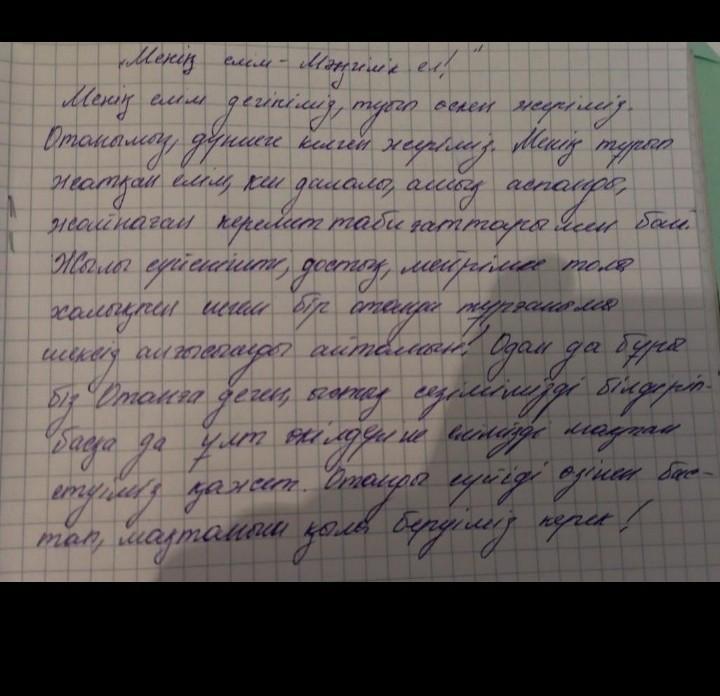 „Менің елім - Мәңгілік ел!"
Менің елім дегініміз, туып өскен жеріміз.
Отанымыз, дүниеге келген жеріміз. Менің тұрып
жатқан елім, кең далалы, ашық аспанды,
жайнаған керемет табиғаттары мен бай.
Жылы сүйеніште, достық, мейрімге толы
халықпен мен бір отанда тұрғаныма
шексіз алғысымды айтамын! Одан да бұры
біз Отанға деген, ыстық сезімімізді білдіріп-
басқа да ұлт өкілдеріне елімізді мақтан
етуіміз қажет. Отанды сүйуді өзінен бас-
тап, мақтаныш қыла беруіміз керек!